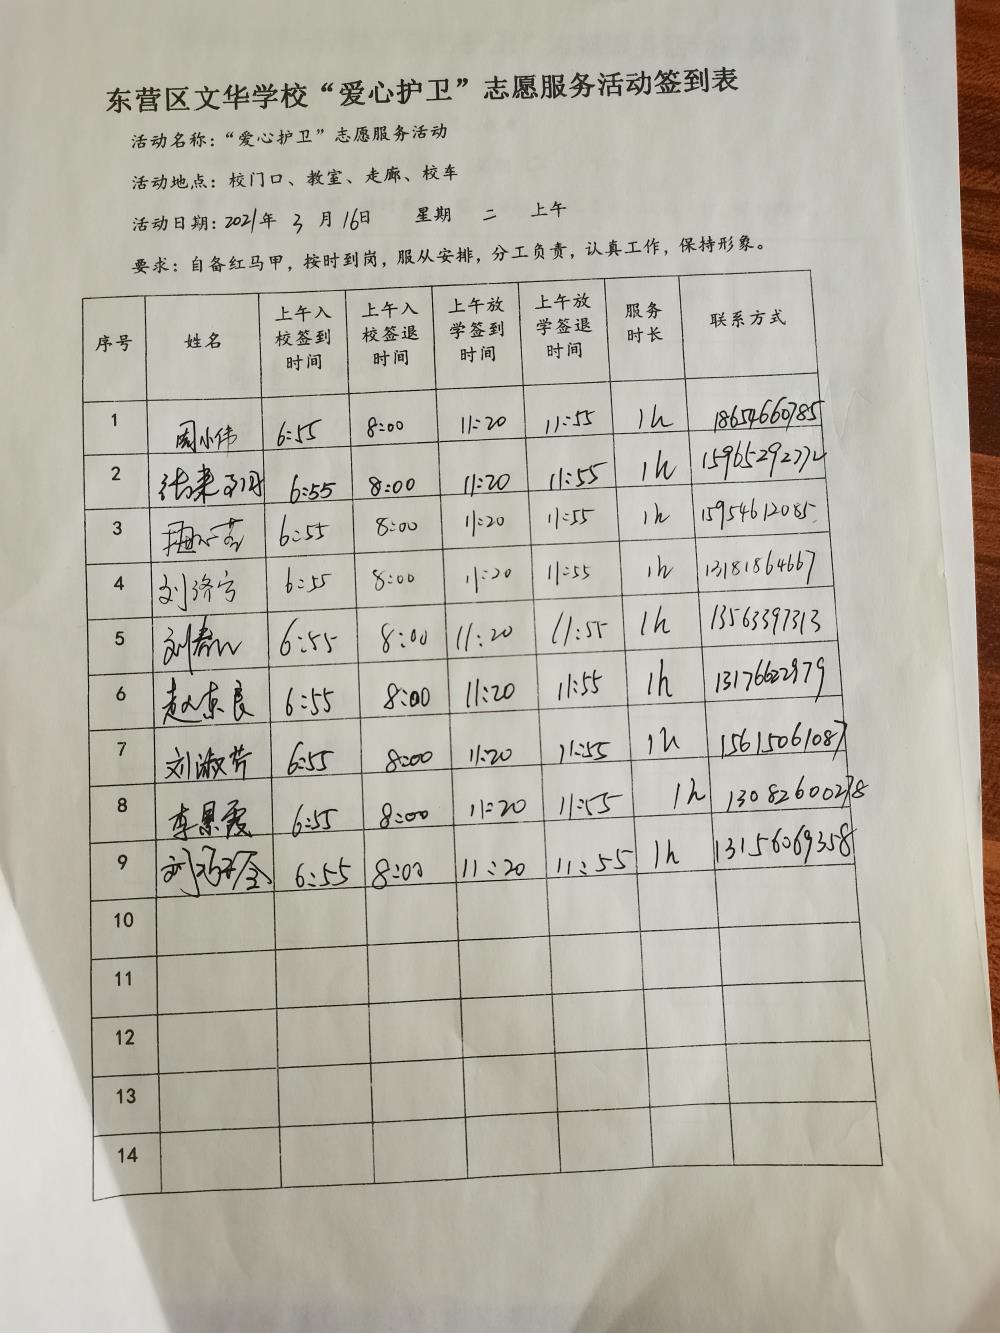 东营区文华学校“爱心护卫”志愿服务活动签到表
活动名称：“爱心护卫”志愿服务活动
活动地点：校门口、教室、走廊、校车
活动日期：2021年 3 月 16日 星期 二 上午
要求：自备红马甲，按时到岗，服从安排，分工负责，认真工作，保持形象。
序号 姓名 上午入校签到时间 上午入校签退时间 上午放学签到时间 上午放学签退时间 服务时长 联系方式
1 周小伟 6:55 8:00 11:20 11:55 1h 18654660785
2 6:55 8:00 11:20 11:55 1h 15965292772
3 6:55 8:00 11:20 11:55 1h 15954612085
4 刘济宁 6:55 8:00 11:20 11:55 1h 13181864667
5 6:55 8:00 11:20 11:55 1h 13563397313
6 赵东良 6:55 8:00 11:20 11:55 1h 13176622979
7 刘淑芳 6:55 8:00 11:20 11:55 1h 15615061087
8 李景霞 6:55 8:00 11:20 11:55 1h 13082600278
9 6:55 8:00 11:20 11:55 1h 13156069358
10
11
12
13
14